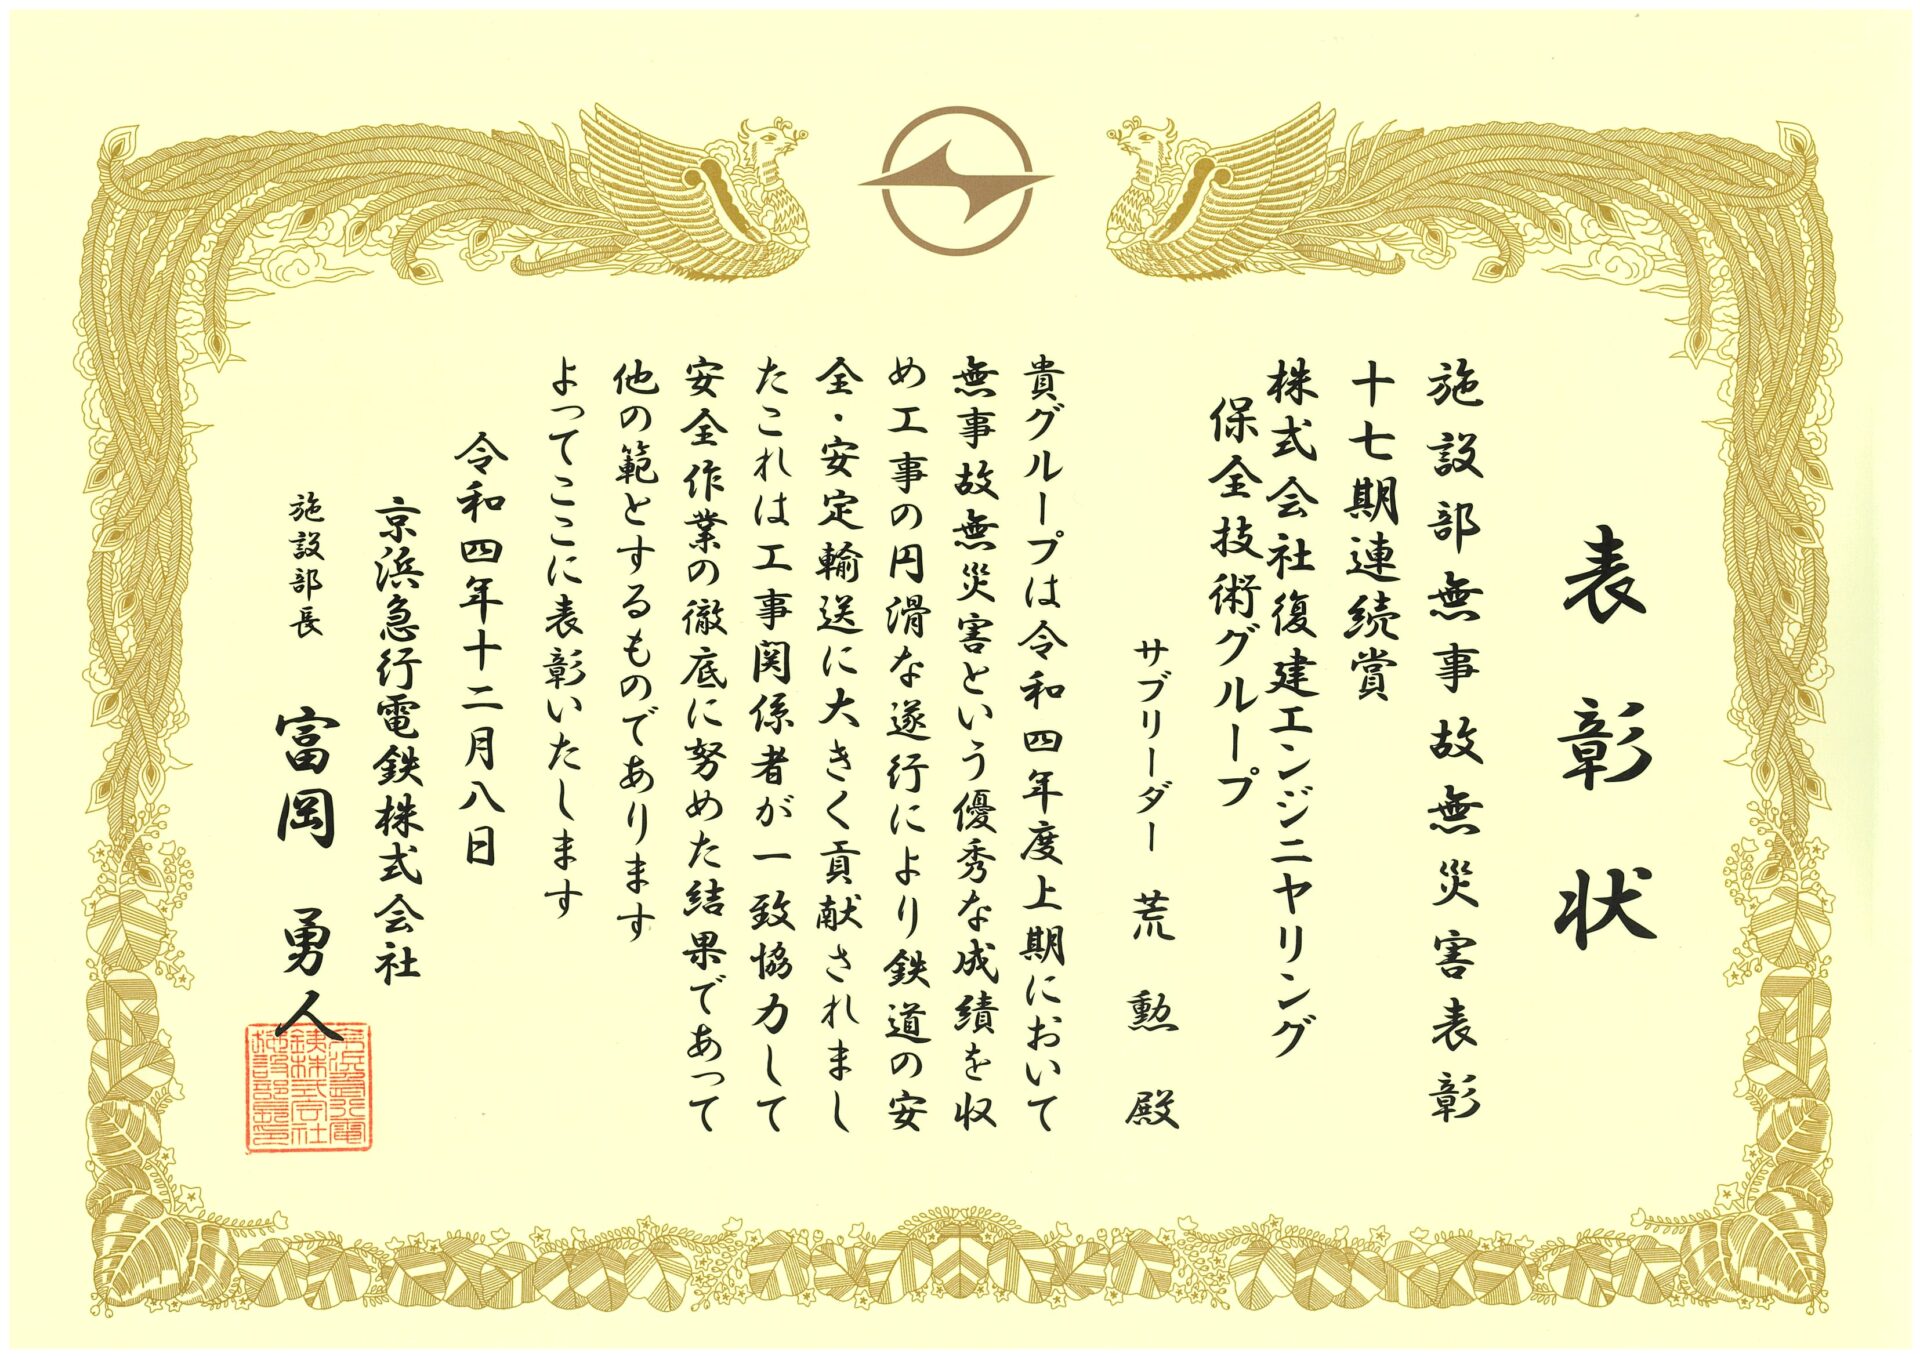 表彰状
施設部無事故無災害表彰
十七期連続賞
株式会社復建エンジニヤリング
保全技術グループ
サブリーダー 荒 勲 殿
貴グループは令和四年度上期において
無事故無災害という優秀な成績を収
め工事の円滑な遂行により鉄道の安
全・安定輸送に大きく貢献されまし
たこれは工事関係者が一致協力して
安全作業の徹底に努めた結果であって
他の範とするものであります
よってここに表彰いたします
令和四年十二月八日
京浜急行電鉄株式会社
施設部長 富岡 勇人
京浜急行電
鉄株式会社
施設部長印